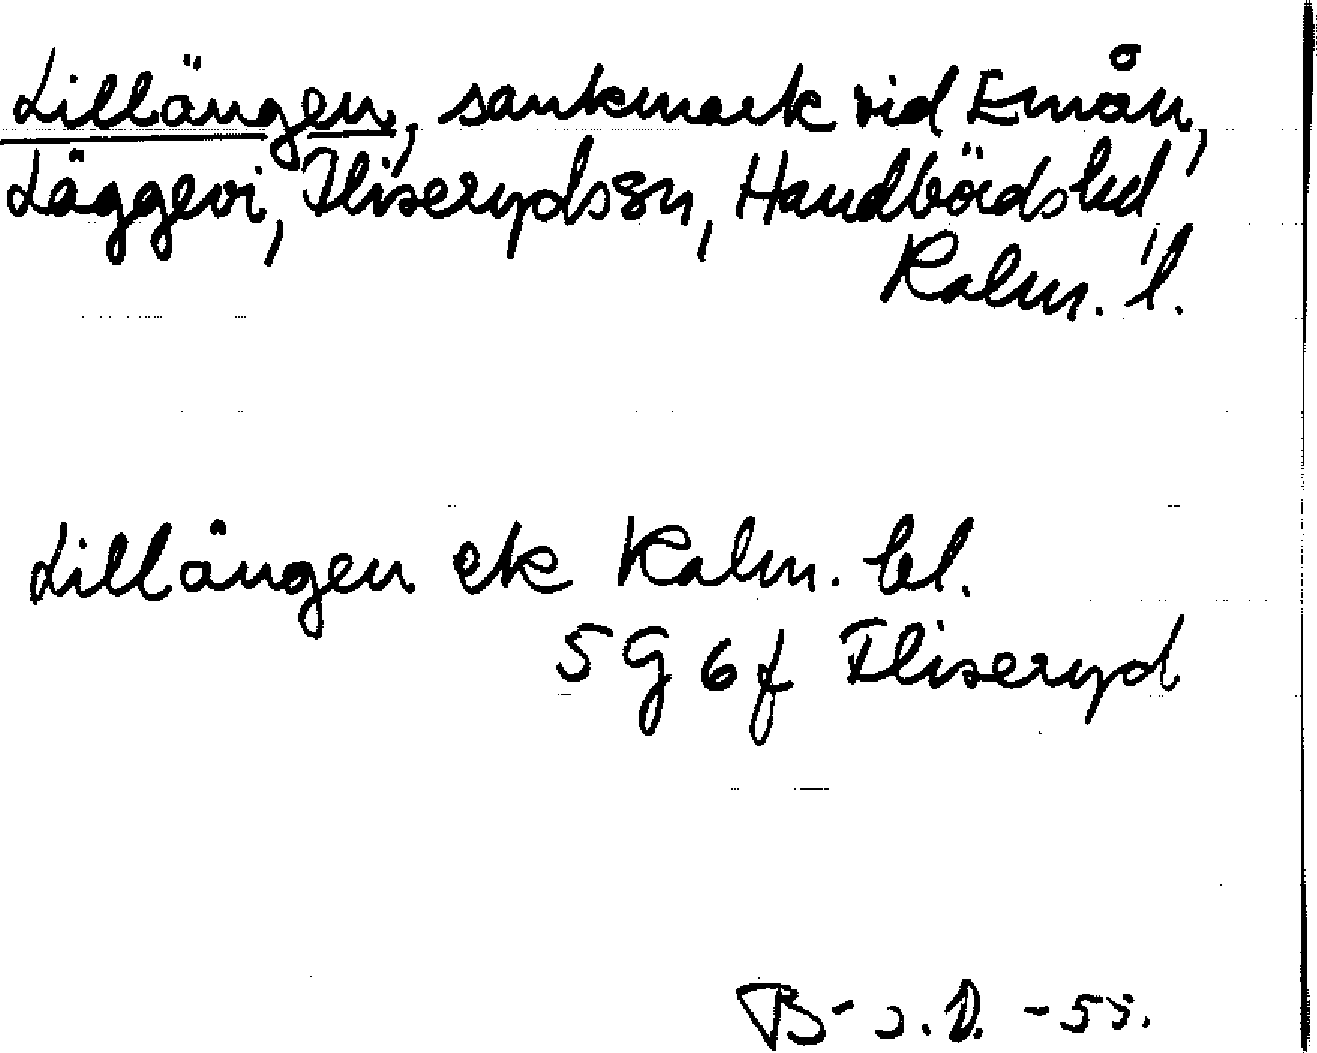 Lillängen, sankmark vid Emån,
Läggevi, Fliserydssn, Handbördshd,
Kalm. l.
Lillängen ek Kalm. bl.
5 G 6 f Fliseryd
-55.